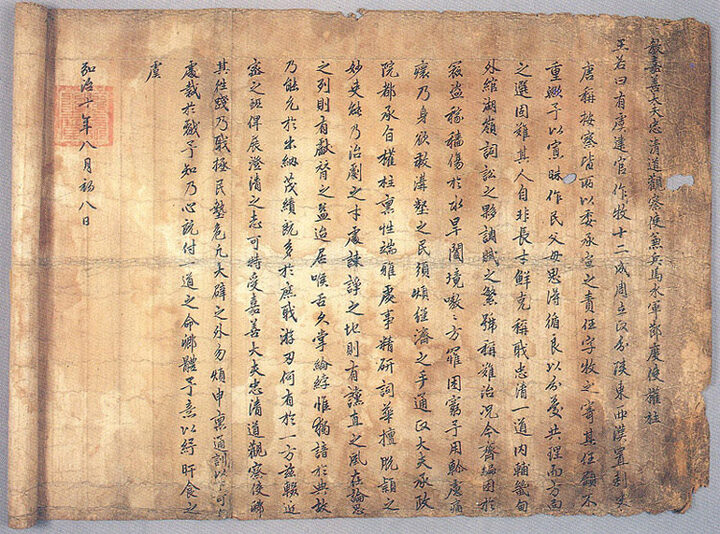 敎嘉善大夫忠清道觀察使兼兵馬水軍節度使權柱
王若曰有虞建官作牧十二成周立政分陜東西漢置刺史
唐稱按察皆所以委承宣之責任字牧之寄其任顧不
重歟予以寡昧作民父母思得循良以分憂共理而方面
之選固難其人自非長才鮮克稱職忠清一道內輔畿甸
外綰湖嶺詞訟之夥調賦之繁號稱難治况今齊編困於
寇盜稼穡傷於水旱闔境嗷々方罹困窮予用軫慮痛
瘝乃身欲救溝壑之民須煩經濟之手通政大夫承政
院都承旨權柱稟性端雅處事精硏詞華擅脫穎之
妙吏能乃治劇之才處諫諍之地則有讜直之風在論思
之列則有獻替之益迨居喉舌久掌綸綍惟獨諳於典故
乃能允於出納茂績旣多於庶職游刃何有於一方玆輟近
密之班俾展澄清之志可特受嘉善大夫忠清道觀察使卿
其往踐乃職拯民墊危凡大辟之外勿煩申稟通訓以下可
處裁於戱予知乃心旣付一道之命卿體予意以紓旰食之
虞
弘治十年八月初八日